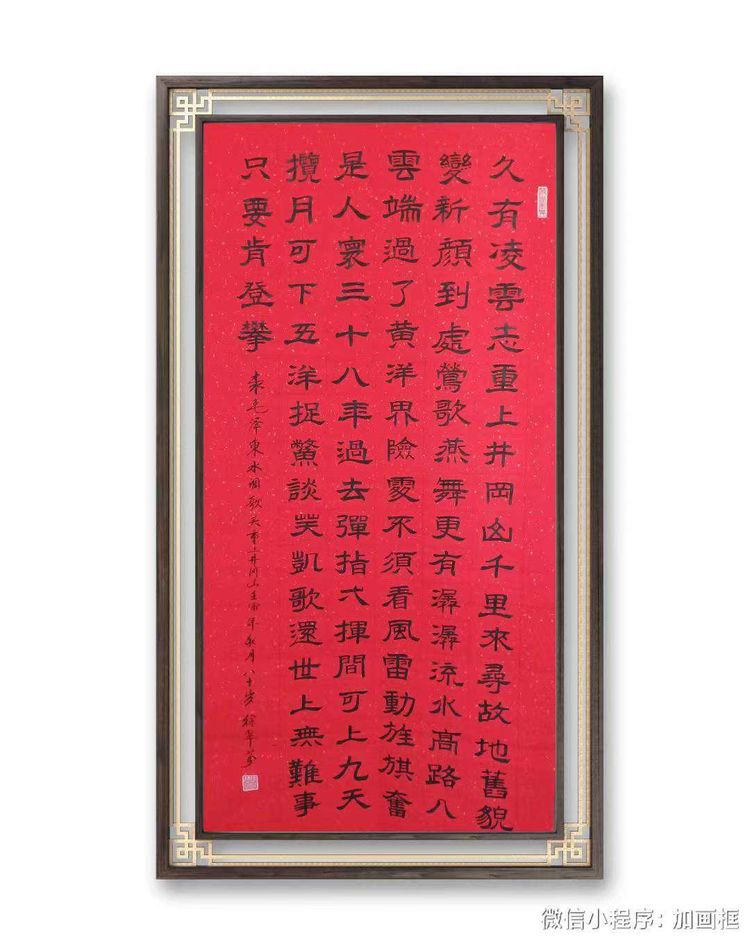 久有凌雲志重上井岡山千里來尋故地舊貌
變新顔到處鶯歌燕舞更有潺潺流水高路入
雲端過了黄洋界險處不須看風雷動旌旗奮
是人寰三十八年過去彈指弌揮間可上九天
攬月可下五洋捉鱉談笑凱歌還世上無難事
只要肯登攀
录毛泽東水调歌头重上井冈山壬寅年秋月八十岁徐
微信小程序：加画框